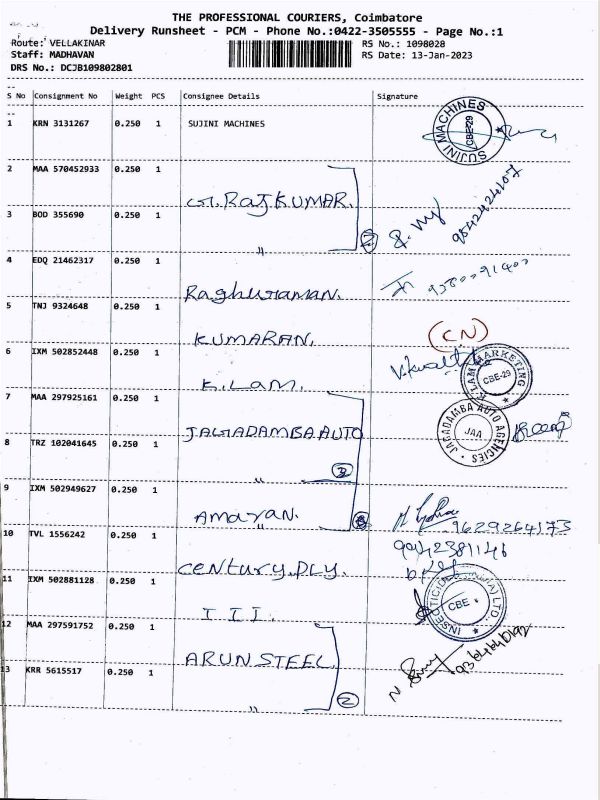 THE PROFESSIONAL COURIERS, Coimbatore
Delivery Runsheet - PCM - Phone No.:0422-3505555 - Page No.:1
Route: VELLAKINAR
RS No.: 1098028
Staff: MADHAVAN
RS Date: 13-Jan-2023
DRS No.: DCJB109802801
S No Consignment No Weight PCS Consignee Details Signature
1 KRN 3131267 0.250 1 SUJINI MACHINES
SUJINI MACHINES CBE-29
2 MAA 570452933 0.250 1
G.RAJKUMAR.
3 BOD 355690 0.250 1
"
2
9842424107
4 EDQ 21462317 0.250 1
Raghuraman.
5 TNJ 9324648 0.250 1
KUMARAN.
(CN)
6 IXM 502852448 0.250 1
K.LAM.
MARKETING CBE-29
7 MAA 297925161 0.250 1
JAGADAMBA AUTO
JAGADAMBA AUTO AGENCIES JAA
8 TRZ 102041645 0.250 1
"
9 IXM 502949627 0.250 1
Amayan.
"
9629264173
10 TVL 1556242 0.250 1
century.ply.
9942381146
11 IXM 502881128 0.250 1
I I I.
CBE
12 MAA 297591752 0.250 1
ARUN STEEL
13 KRR 5615517 0.250 1
"
2